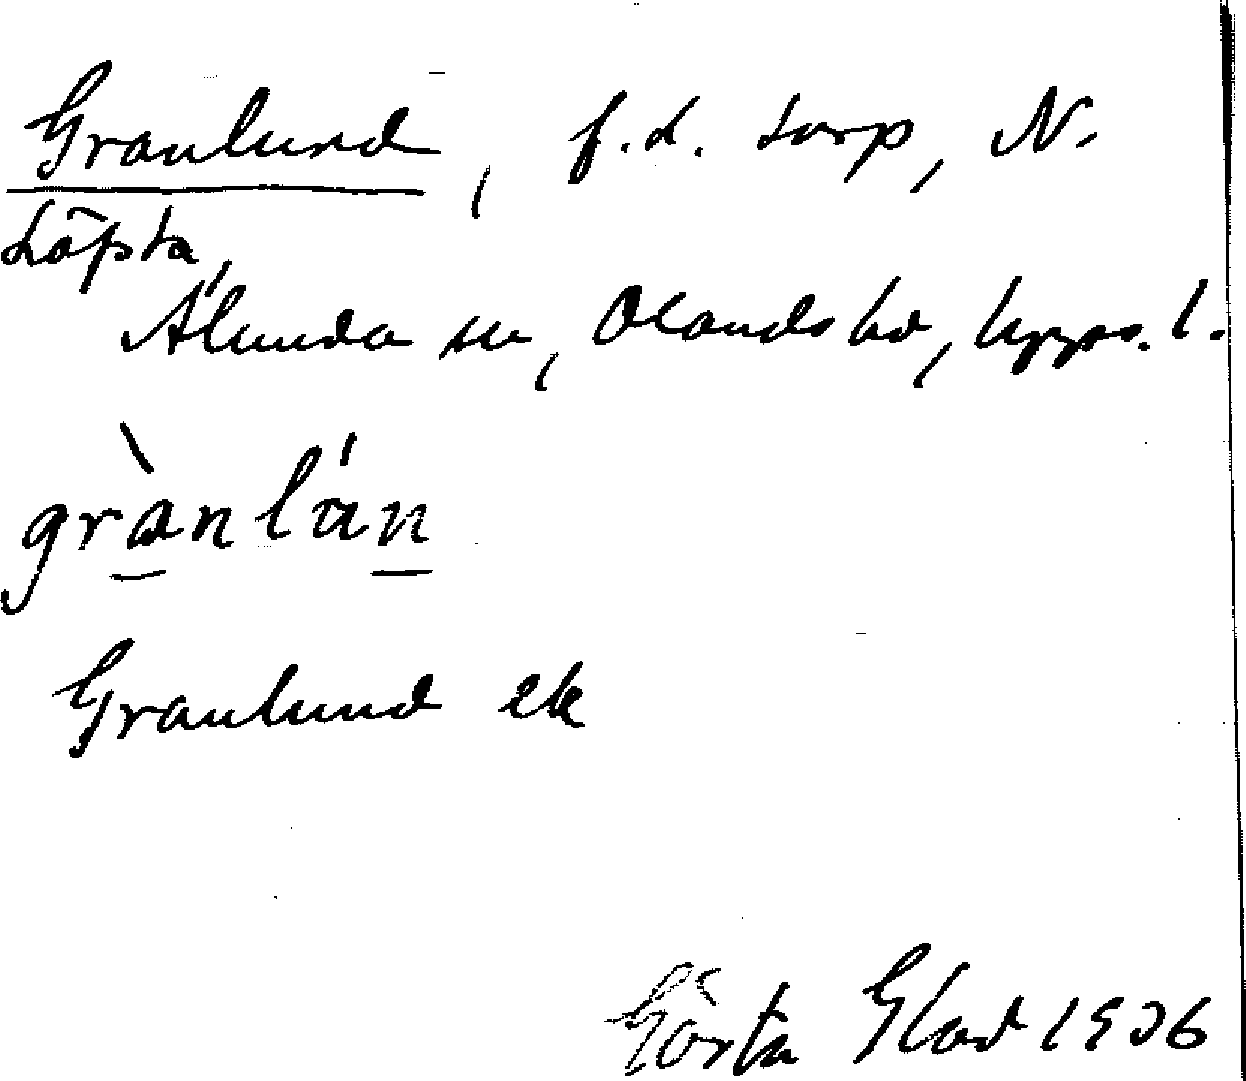 Granlund, f.d. torp, N.
Löpsta,
Alunda sn, Olands hd, Upps. l.
grànlún
Granlund ek
Gösta Glad 1936